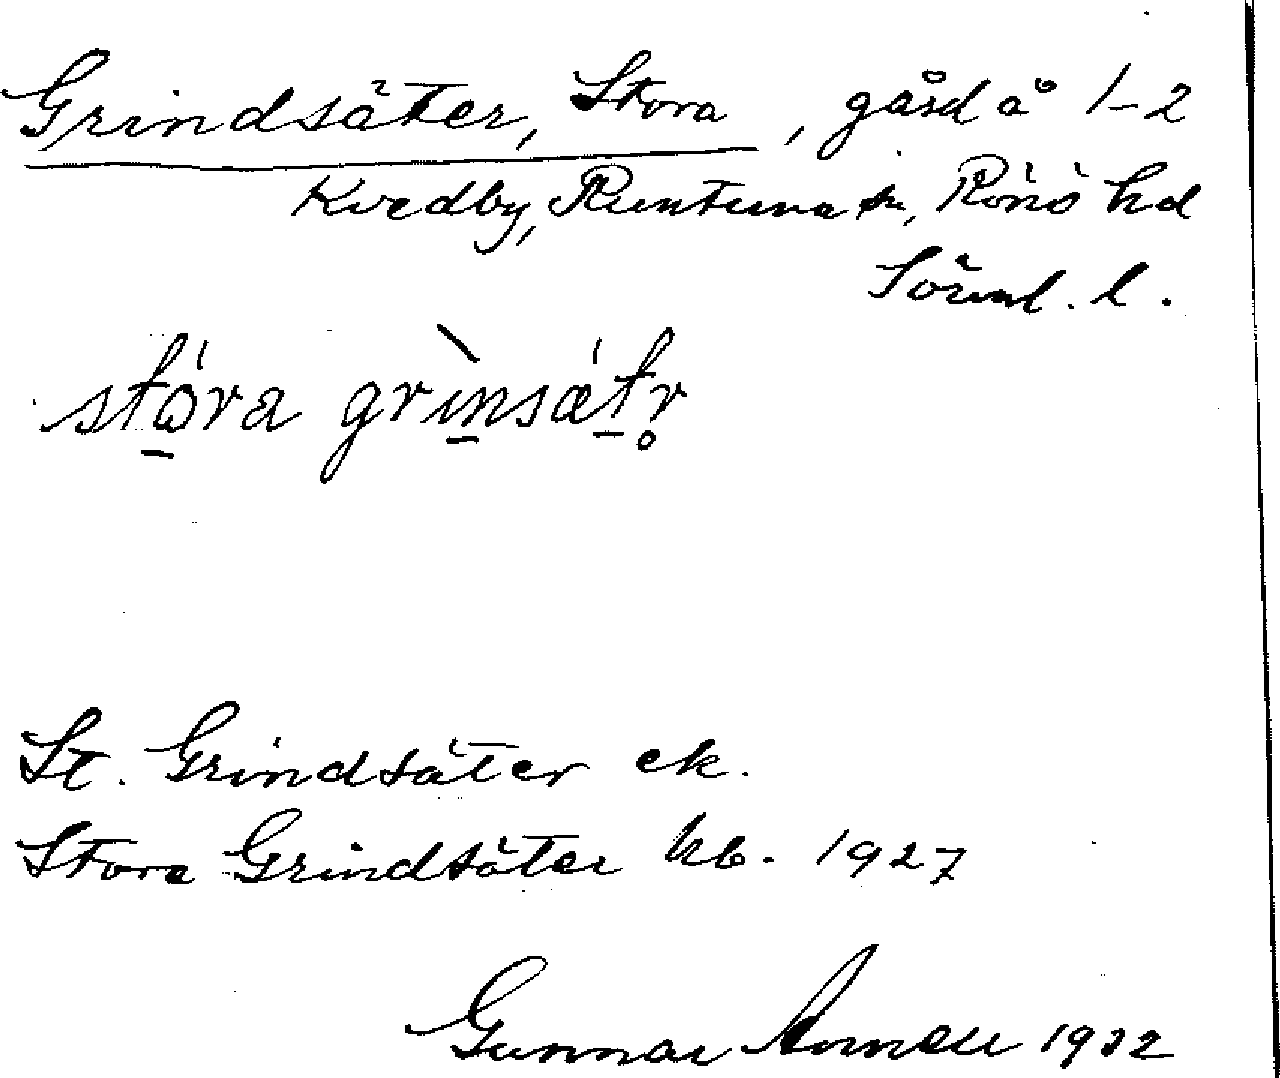 Grindsäter, Stora, gård å 1-2
Kvedby, Runtuna sn, Rönö hd
Söderml. l.
stóra grìnsǽtr̥
St. Grindsäter ek.
Stora Grindsäter kb. 1927
Gunnar Annell 1932